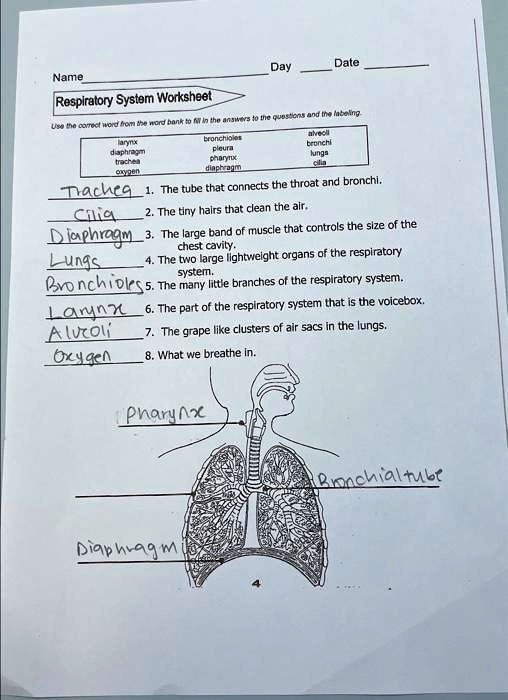 Name Day Date
Respiratory System Worksheet
Use the correct word from the word bank to fill in the answers to the questions and the labeling.
larynx bronchioles alveoli
diaphragm pleura bronchi
trachea pharynx lungs
oxygen diaphragm cilia
Trachea 1. The tube that connects the throat and bronchi.
Cilia 2. The tiny hairs that clean the air.
Diaphragm 3. The large band of muscle that controls the size of the
chest cavity.
Lungs 4. The two large lightweight organs of the respiratory
system.
Bronchioles 5. The many little branches of the respiratory system.
Larynx 6. The part of the respiratory system that is the voicebox.
Alveoli 7. The grape like clusters of air sacs in the lungs.
Oxygen 8. What we breathe in.
Pharynx
Bronchial tube
Diaphragm
4